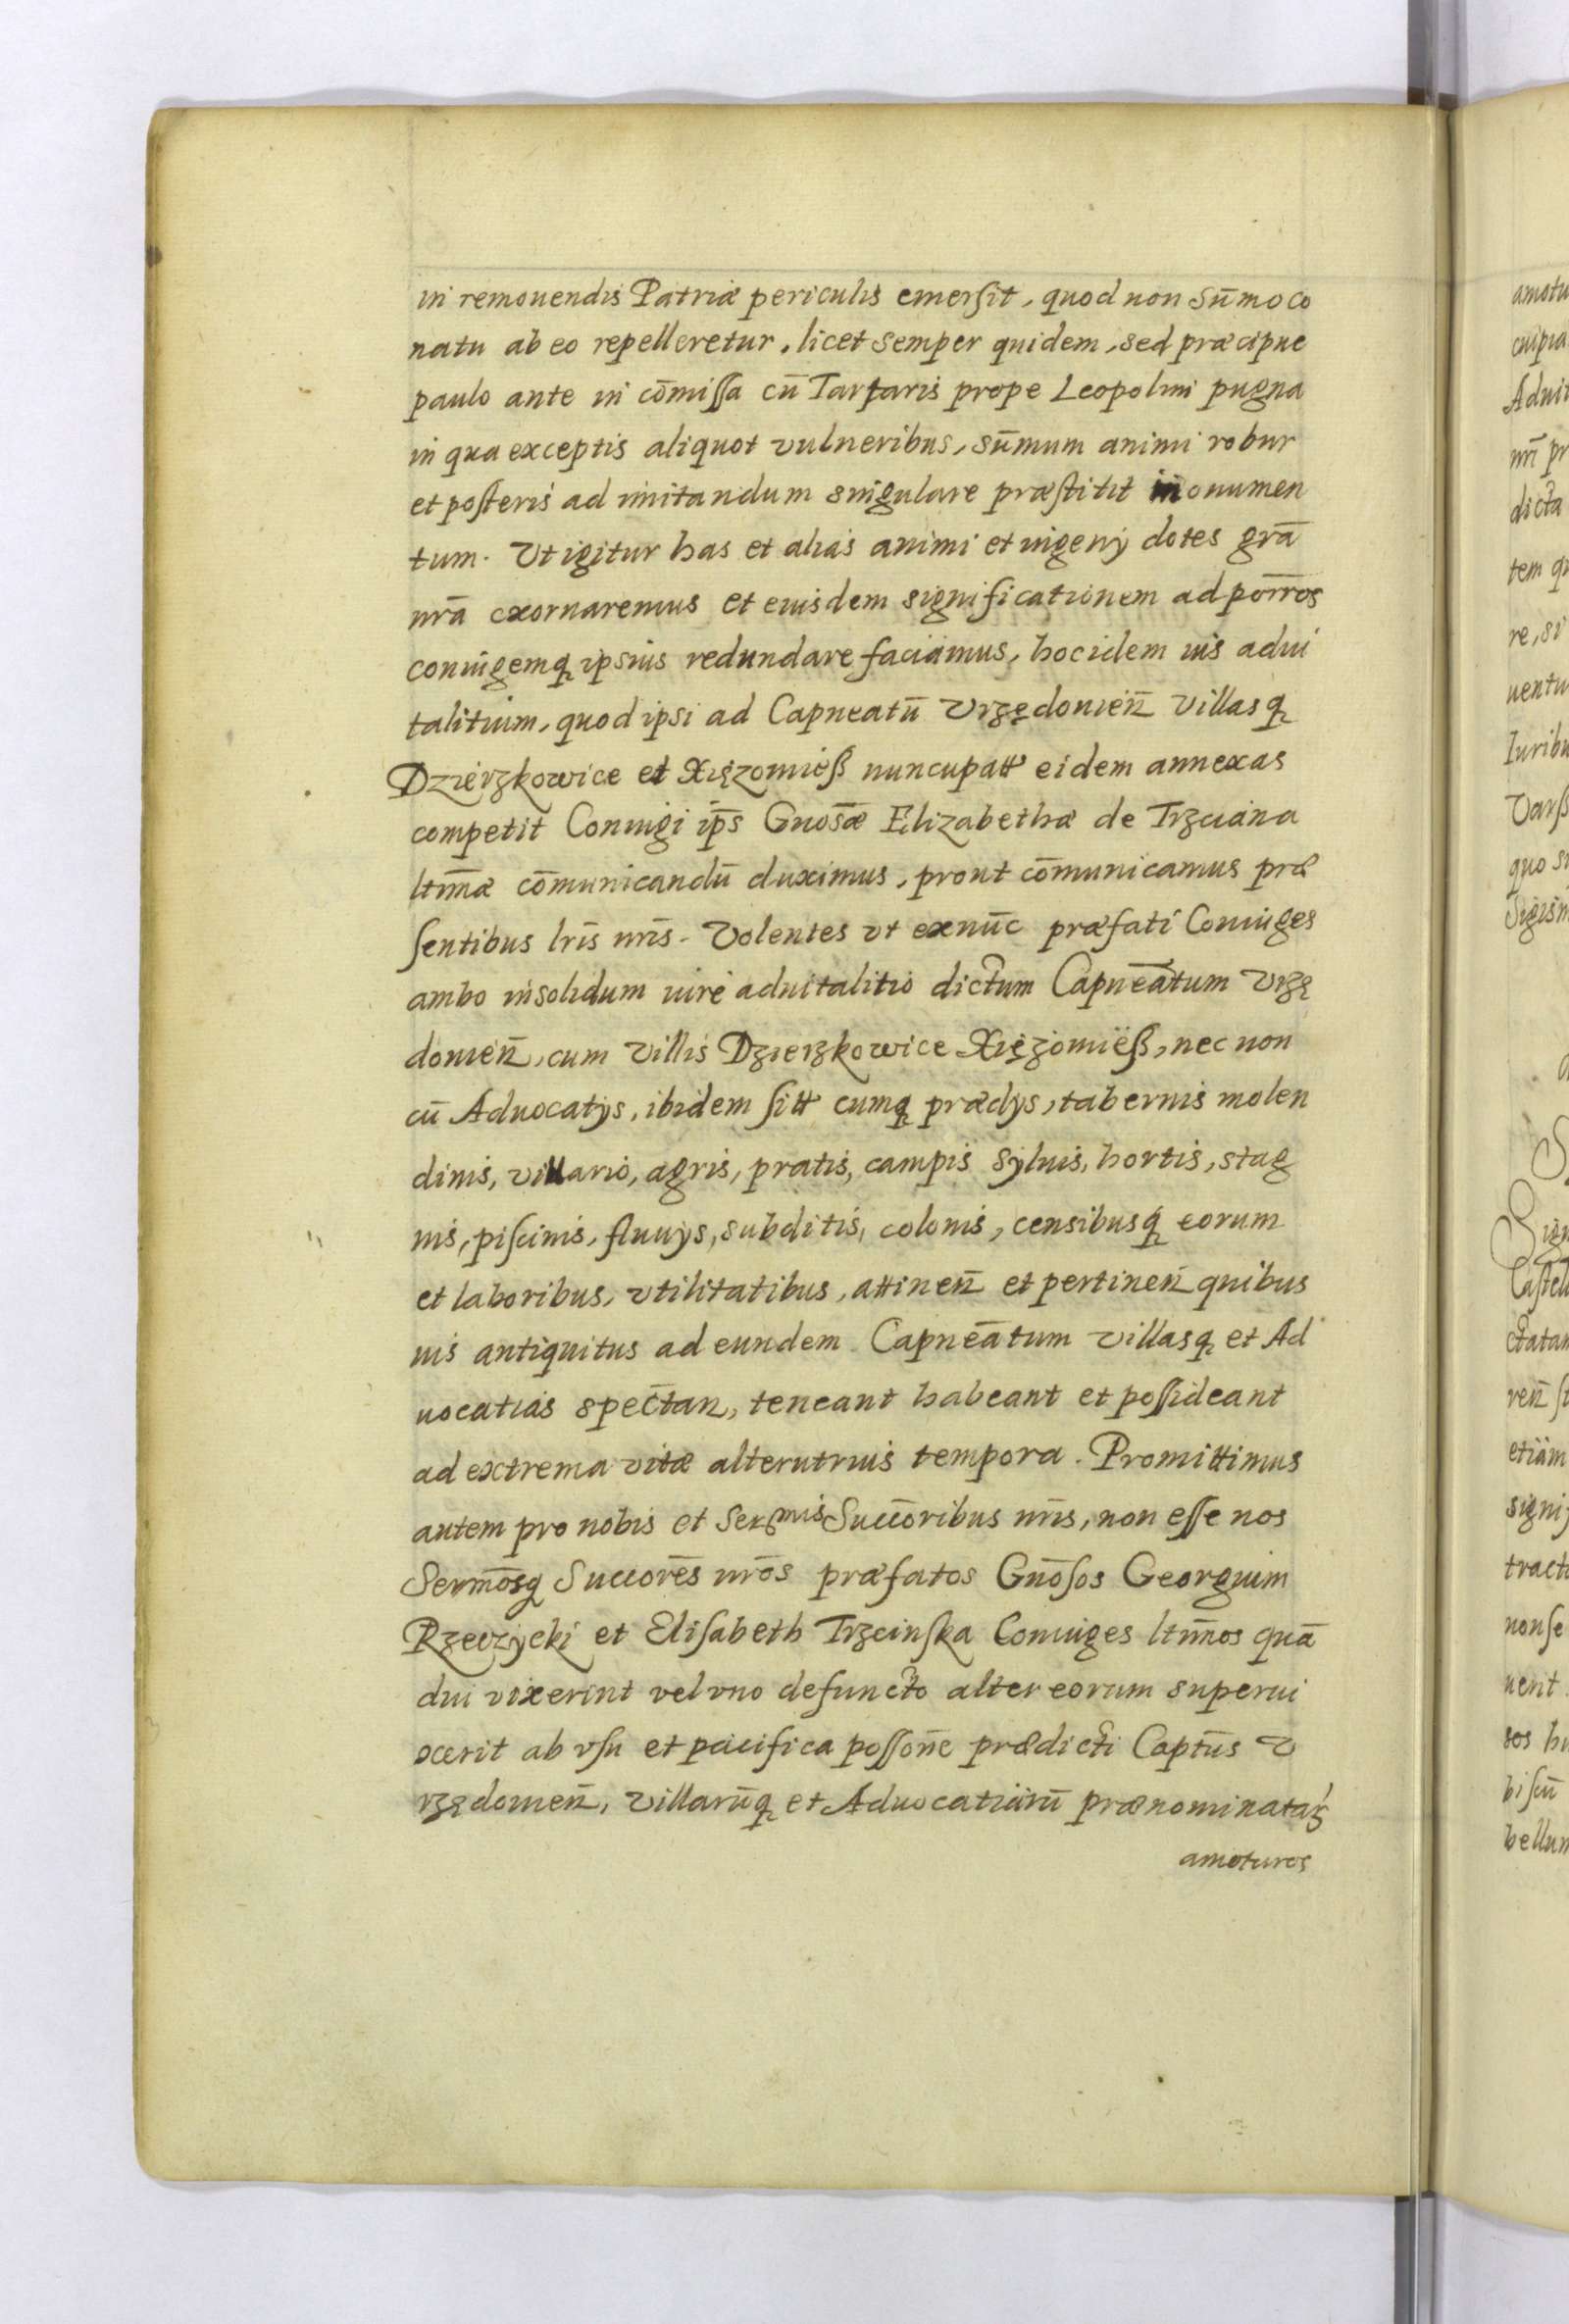 in remouendis Patriæ periculis emersit, quod non sūmo co
natu ab eo repelleretur, licet semper quidem, sed præcipue
paulo ante in cōmissa cū Tartaris prope Leopolim pugna
in qua exceptis aliquot vulneribus, sūmum animi robur
et posteris ad imitandum singulare præstitit monumen
tum. Vt igitur has et alias animi et ingenij dotes grã
nrã exornaremus et eiusdem significationem ad porros
coniugemq ipsius redundare faciamus, hoc idem ius adui
talitium, quod ipsi ad Capneatū Vrzędouień villasq
Dzierzkowice et Xięzomieß nuncupatt eidem annexas
competit Coniugi ip̄s Gnosæ Elizabethæ de Trzciana
ltm̄æ cōmunicandū duximus, prout cōmunicamus præ
sentibus lris nris. Volentes vt ex nūc præfati Coniuges
ambo insolidum iure aduitalitio dictum Capneatum Vrzę
douień, cum villis Dzierzkowice Xięzomieß, nec non
cū Aduocatijs, ibidem sitt cumq prædijs, tabernis molen
dinis, villario, agris, pratis, campis syluis, hortis, stag
nis, piscinis, fluuijs, subditis, colonis, censibusq eorum
et laboribus, vtilitatibus, attineñ et pertineñ quibus
uis antiquitus ad eundem Capneatum villasq et Ad
uocatias spectan, teneant habeant et possideant
ad extrema vitæ alterutrius tempora. Promittimus
autem pro nobis et Sermis Succoribus nris, non esse nos
Sermosq Succores nros præfatos Gnosos Georgium
Rzeczycki et Elisabeth Trzcinska Coniuges ltm̄os quā
diu vixerint vel vno defuncto alter eorum superui
xerit ab vsu et pacifica possoñe prædicti Capt̄us V
rzędouień, villarūq et Aduocatiarū prænominataꝝ
amoturos
amotu
Adui
dicta
tem q
re, si
uentu
Iuribu
Vars
quo
Sigism
Sig
Castel
ctatan
etiam
signif
tract
nonse
uerit
sos h
bellum